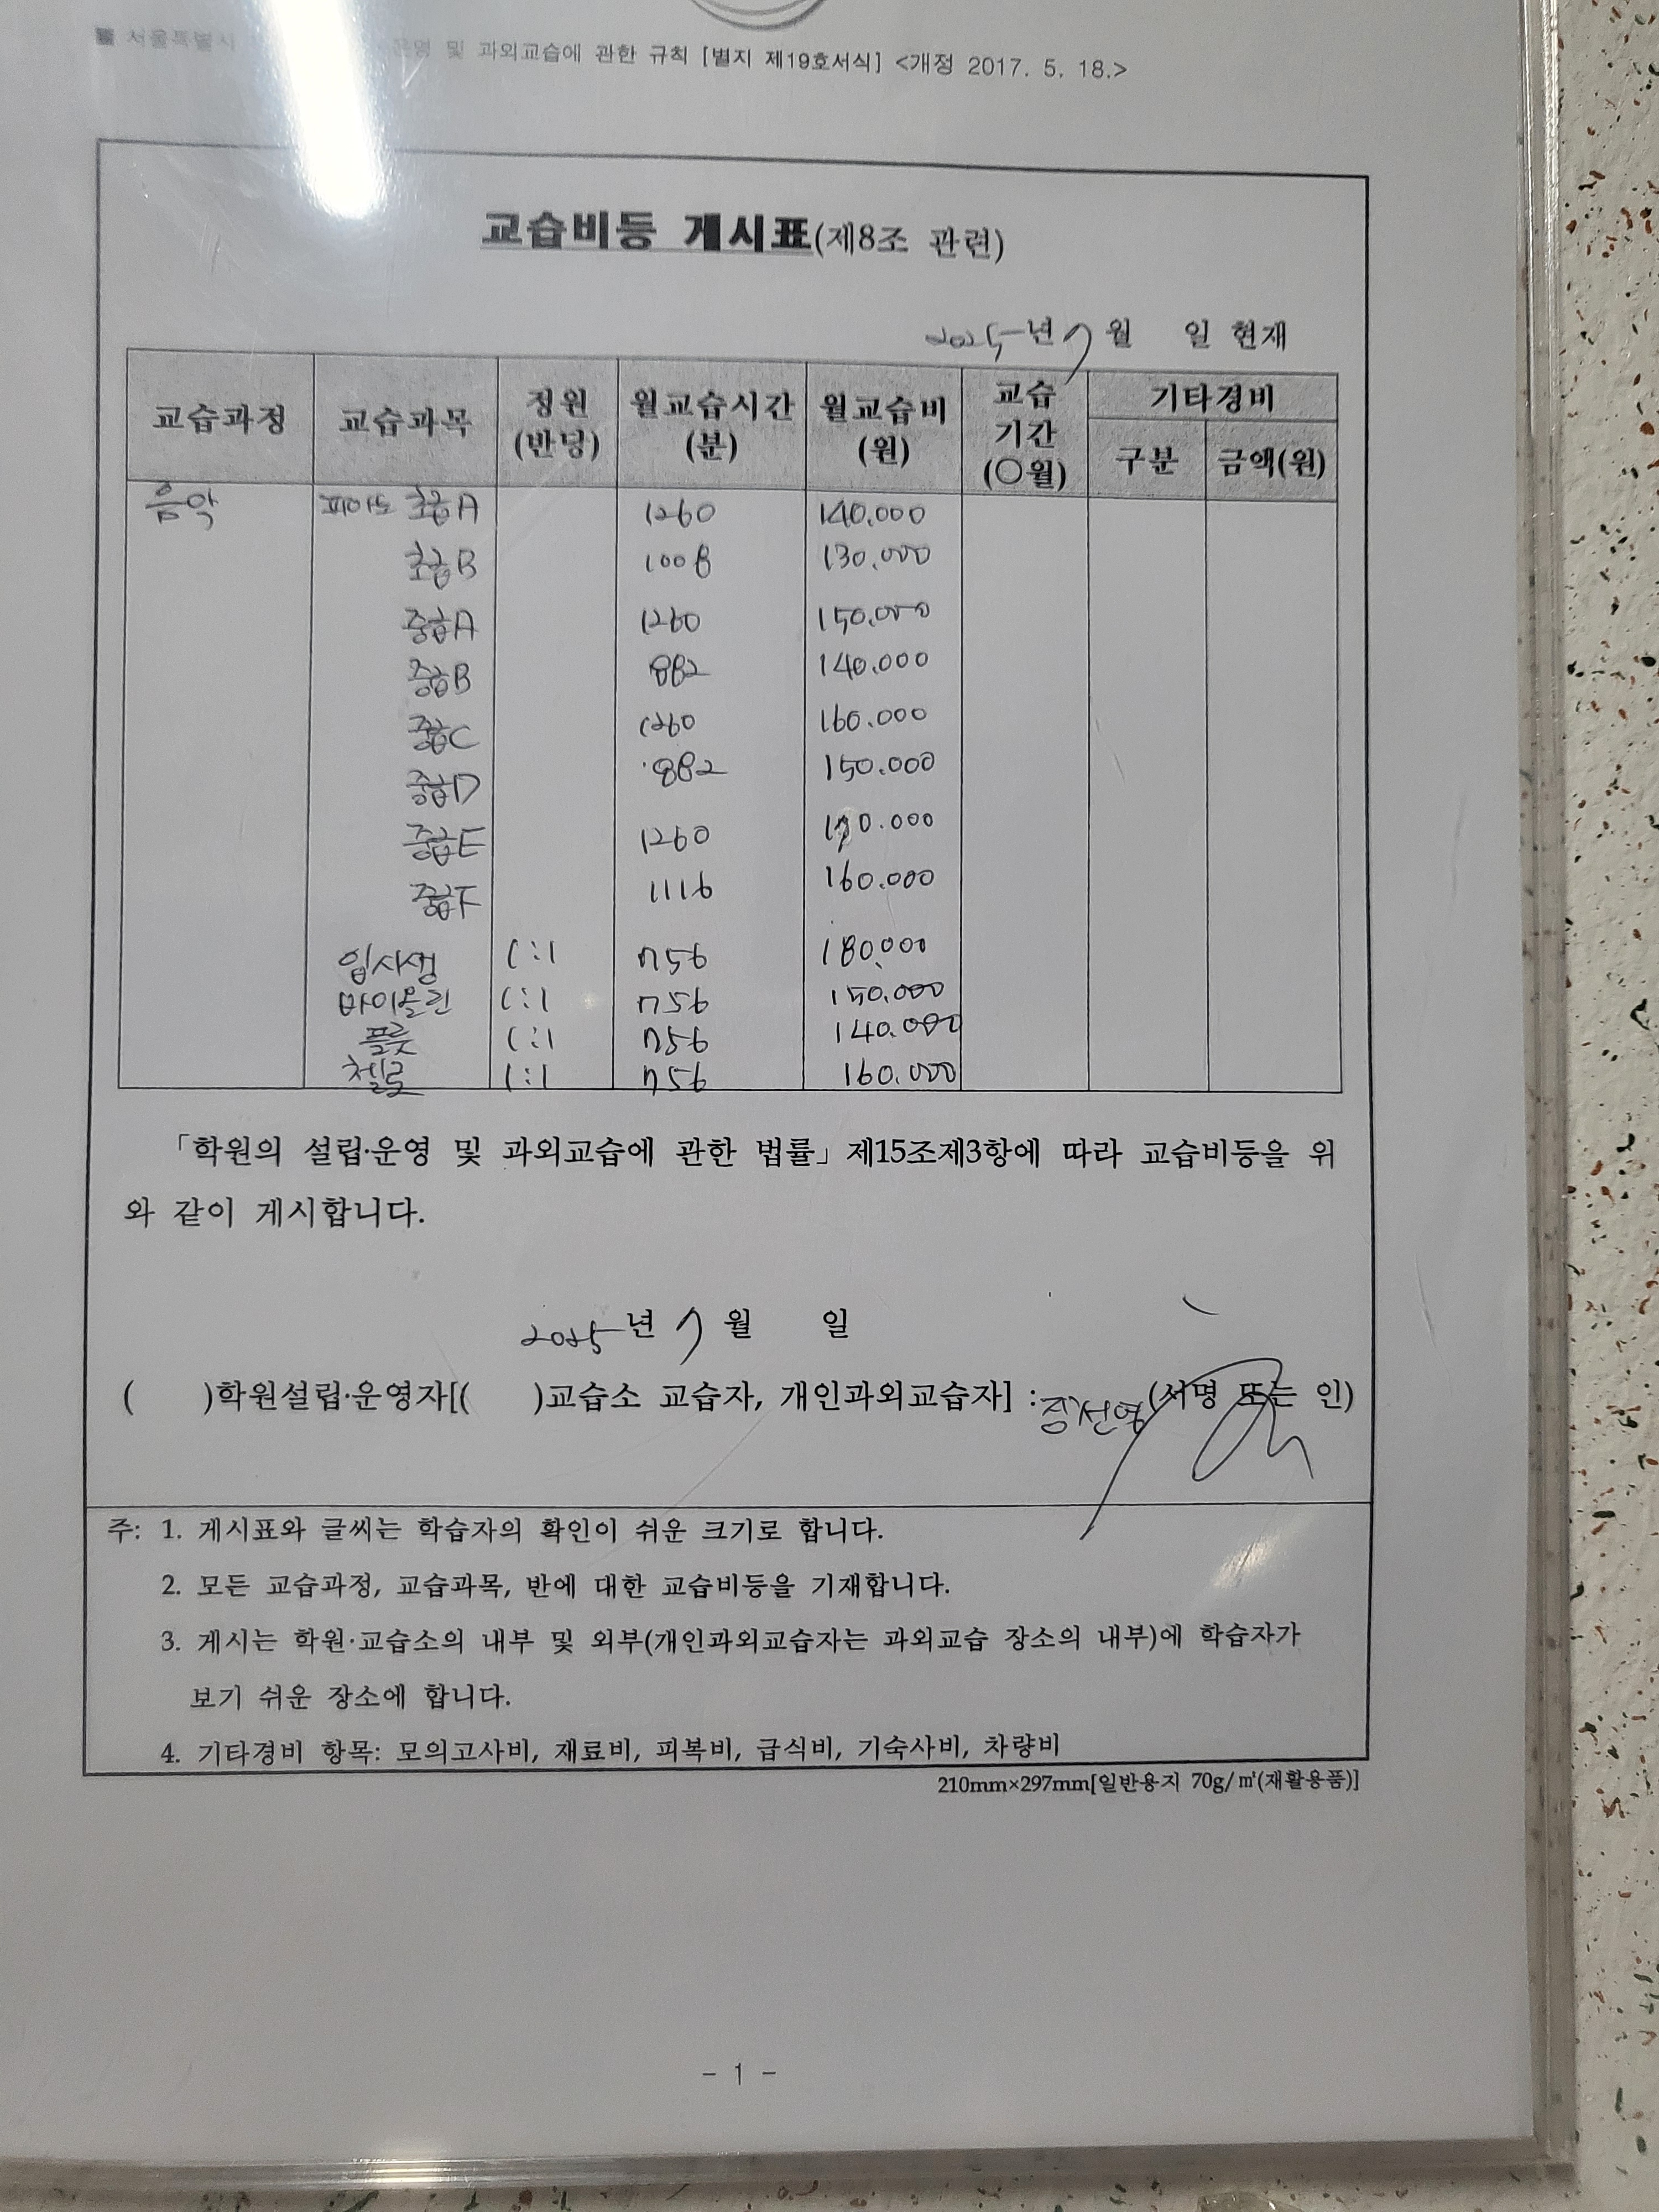 서울특별시 운영 및 과외교습에 관한 규칙 [별지 제19호서식] <개정 2017. 5. 18.>
교습비등 게시표(제8조 관련)
2025년 7월 일 현재
교습과정 교습과목 정원(반당) 월교습시간(분) 월교습비(원) 교습기간(○월) 기타경비 구분 금액(원)
음악 피아노 초급A 1260 140.000
초급B 1008 130.000
중급A 1260 150.000
중급B 882 140.000
중급C 1260 160.000
중급D 882 150.000
중급E 1260 170.000
중급F 1116 160.000
입시생 1:1 756 180.000
바이올린 1:1 756 150.000
플룻 1:1 756 140.000
첼로 1:1 756 160.000
「학원의 설립·운영 및 과외교습에 관한 법률」 제15조제3항에 따라 교습비등을 위
와 같이 게시합니다.
2025년 7월 일
( )학원설립·운영자[( )교습소 교습자, 개인과외교습자] : (서명 또는 인)
주: 1. 게시표와 글씨는 학습자의 확인이 쉬운 크기로 합니다.
2. 모든 교습과정, 교습과목, 반에 대한 교습비등을 기재합니다.
3. 게시는 학원·교습소의 내부 및 외부(개인과외교습자는 과외교습 장소의 내부)에 학습자가
보기 쉬운 장소에 합니다.
4. 기타경비 항목: 모의고사비, 재료비, 피복비, 급식비, 기숙사비, 차량비
210mm×297mm[일반용지 70g/㎡(재활용품)]
- 1 -